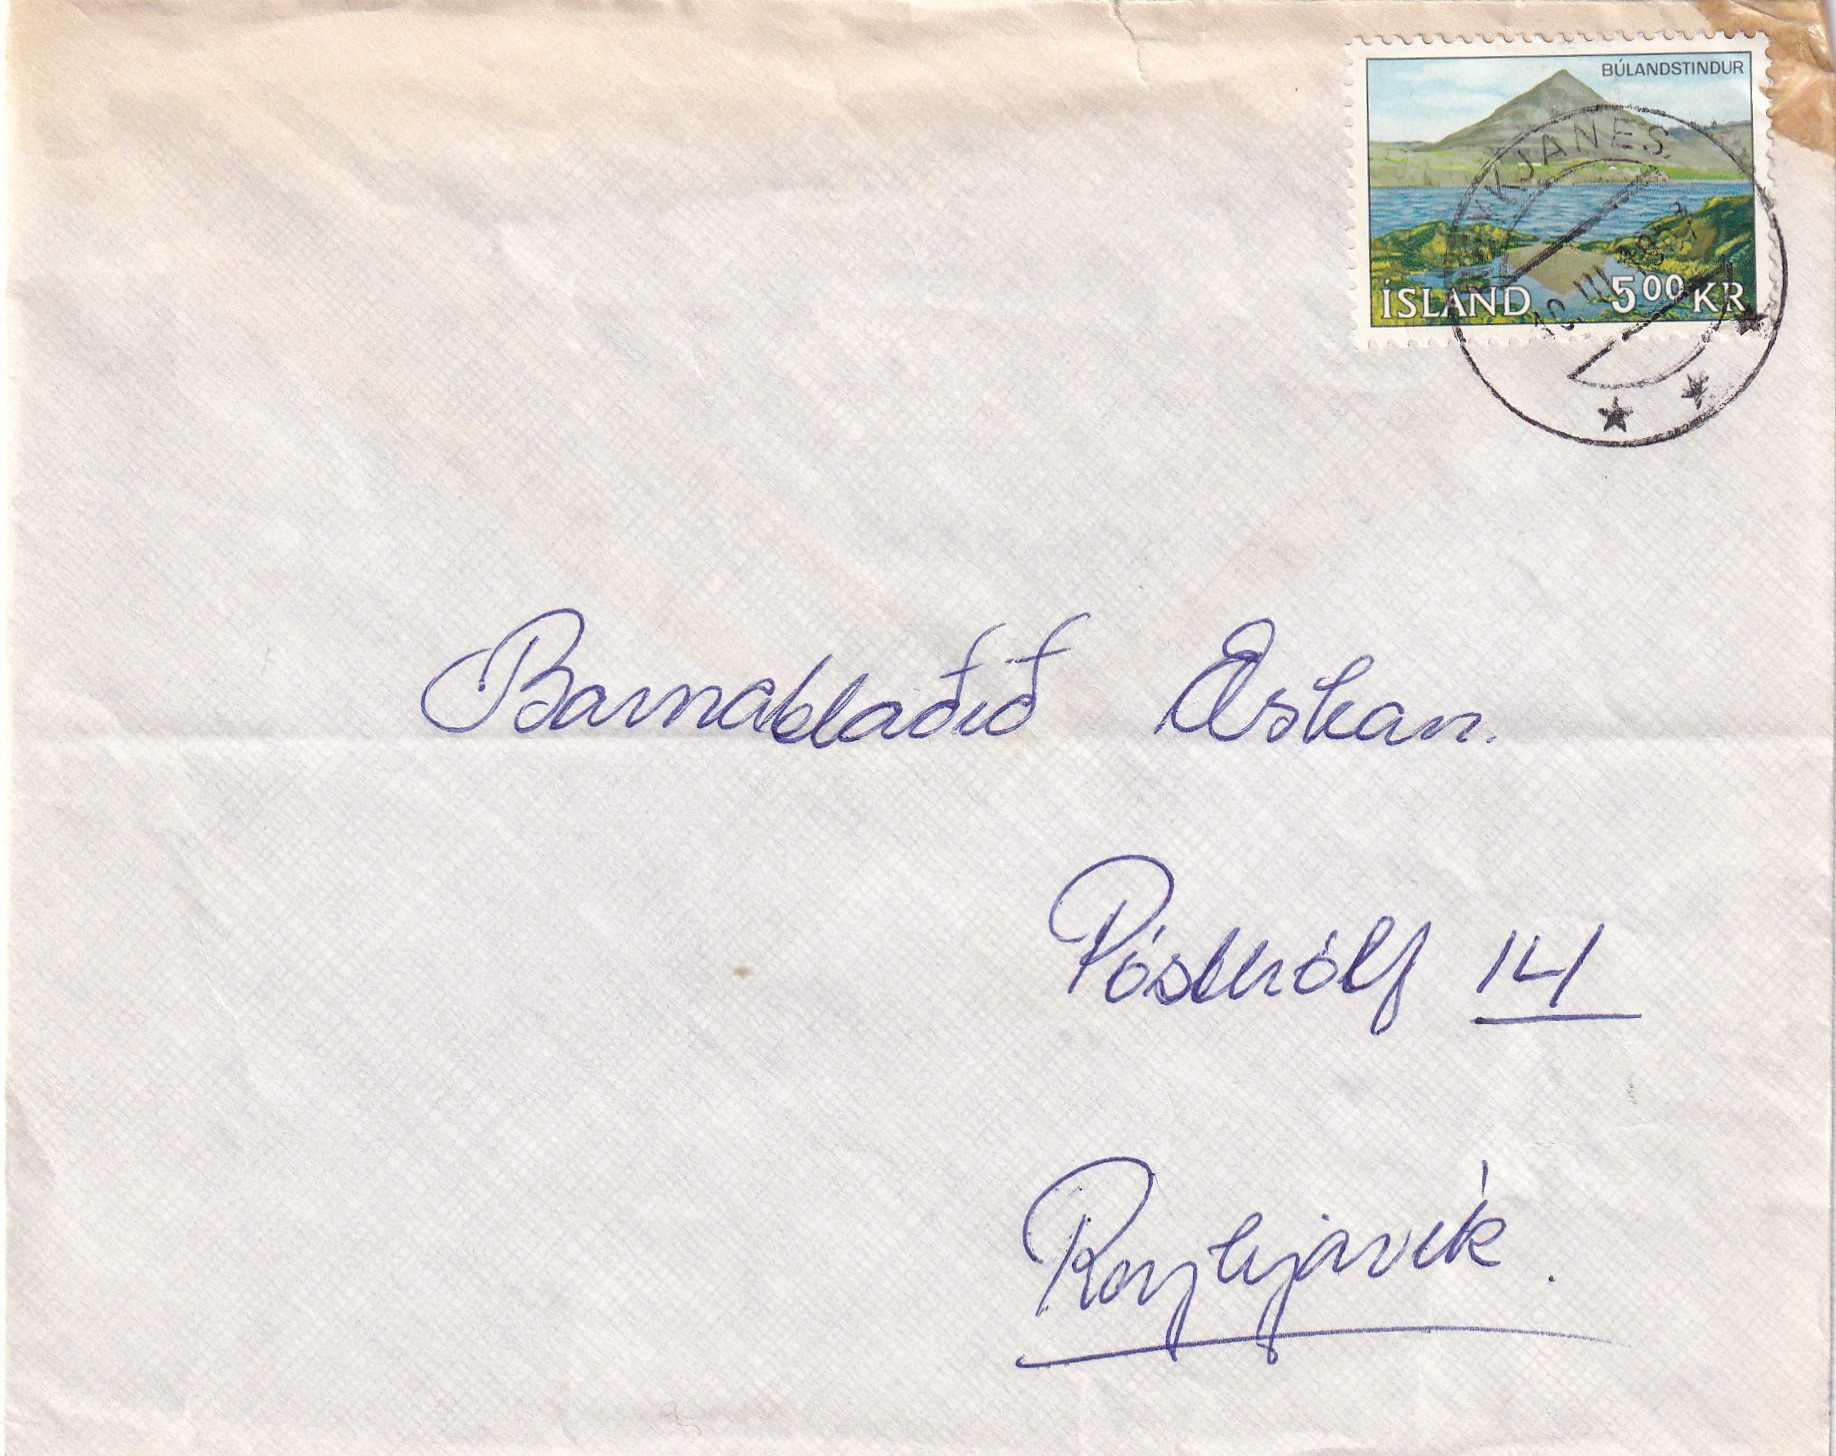 BÚLANDSTINDUR
ÍSLAND 500 KR
YKJANES
10. III
Barnablaðið Æskan.
Pósthólf 14
Reykjavík.